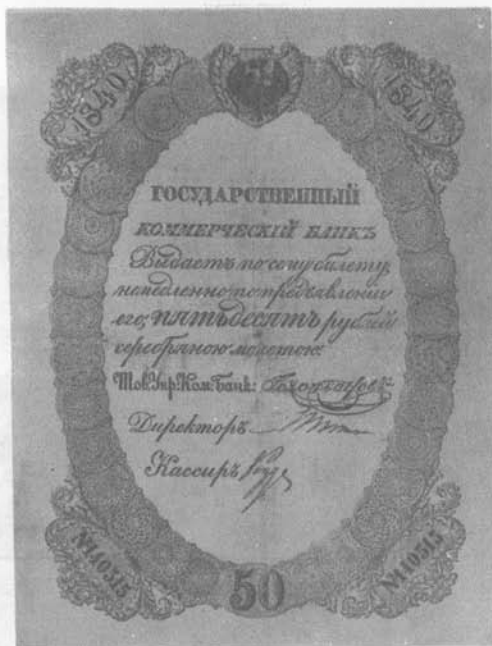 1840 1840
ГОСУДАРСТВЕННЫЙ
КОММЕРЧЕСКІЙ БАНКЪ
Выдастъ по сему билету,
немедленно по предъявленіи
его, пятьдесятъ рублей
серебряною монетою.
Тов. Упр. Ком. Банк:
Директоръ
Кассиръ
№140515 №140515
50